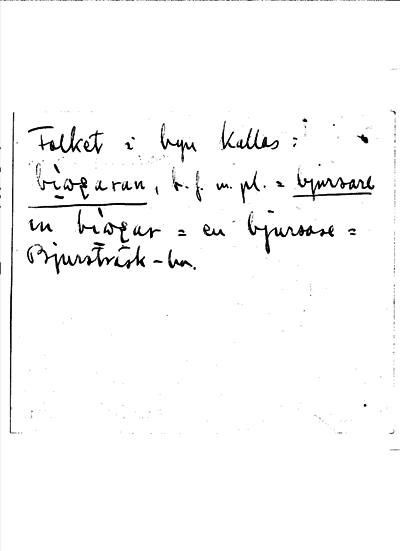 Folket i byn kallas:
biwgaran, b. f. m. pl. = bjursare
en biwgar = en bjursare =
Bjursträsk-bo.